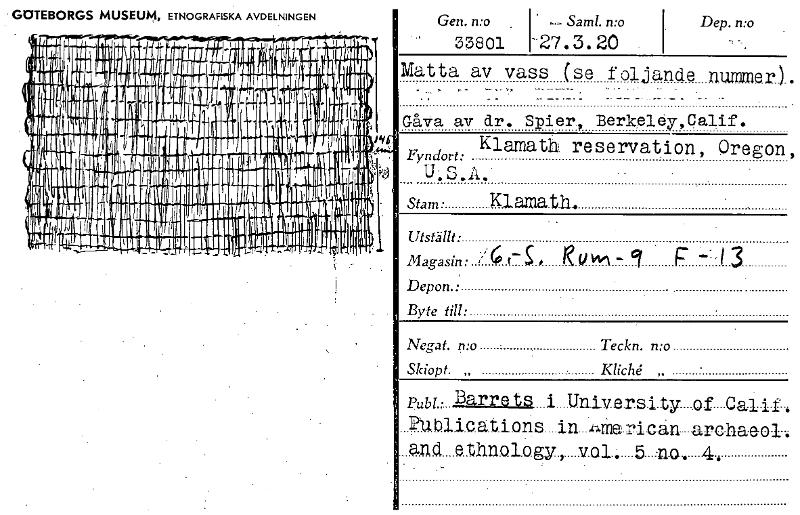 GÖTEBORGS MUSEUM, ETNOGRAFISKA AVDELNINGEN
Gen. n:o Saml. n:o Dep. n:o
33801 27.3.20
Matta av vass (se foljande nummer).
Gåva av dr. Spier, Berkeley,Calif.
Fyndort: Klamath reservation, Oregon,
U.S.A.
Stam: Klamath.
Utställt:
Magasin: 6.-S. Rum-9 F-13
Depon.:
Byte till:
Negat. n:o Teckn. n:o
Skiopt. „ Kliché „
Publ.: Barrets i University of Calif.
Publications in American archaeol.
and ethnology, vol. 5 no. 4.